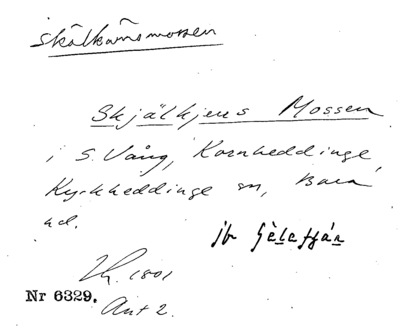 Skälkärnsmossen
Skjälkjens Mossen
i S. Vång, Kornheddinge,
Kyrkheddinge sn, Bara
hd.
jfr
1801
Nr 6329.
Ant 2.